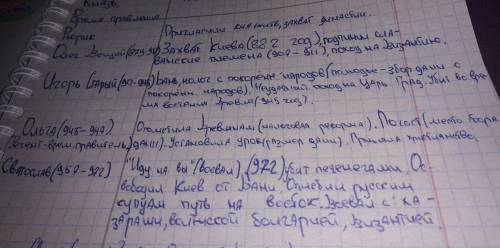 Князь.
Время правления.
Рюрик Приглашен княжить, захват династии.
Олег Вещий(879-912) Захват Киева (882 год), подчинил сла-
вянские племена (907 - 911), поход на Византию.
Игорь (Старый)(912-945) налог с покорен. народов (полюдье-сбор дани с
покорен. народов). Неудачный поход на Царь Град. Убит во вре-
мя восстания древлян (945 год).
Ольга (945-
Регент-врем. правитель) Отомстила древлянам (налоговая реформа). Погост (место сбора
дани). Установила урок (размер дани). Приняла христианство.
Святослав (  -972) "Иду на вы" (воевал), (972) убит печенегами. Ос-
вободил Киев от дани. русским
купцам путь на восток. Воевал с ха-
зарами, волжской болгарией, Византией.